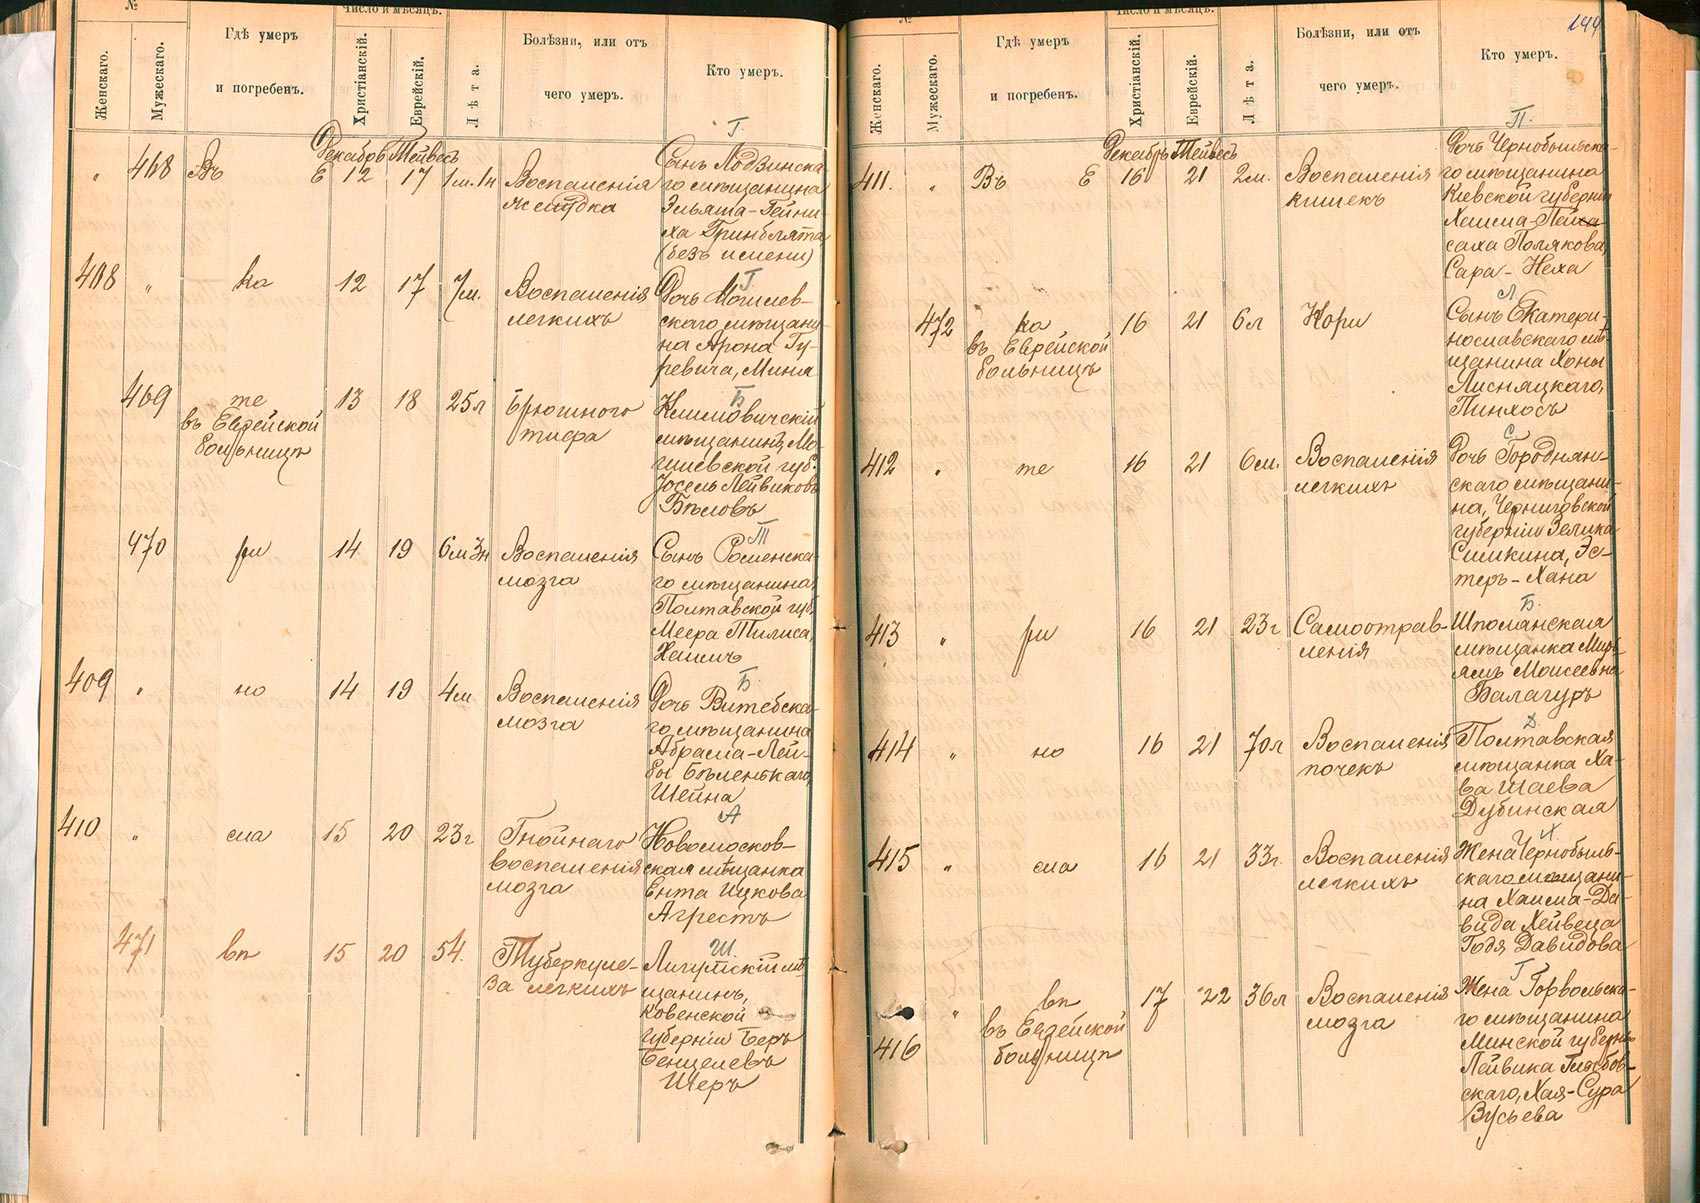 №
Число и мѣсяцъ.
Женскаго.
Мужескаго.
Гдѣ умеръ
и погребенъ.
Христіанскій.
Еврейскій.
Лѣта.
Болѣзни, или отъ
чего умеръ.
Кто умеръ.
Г.
Декабрь Тейвесъ
" 468 Въ Е 12 17 1м. 1н Воспаленія
желудка
Сынъ Лодзинска-
го мѣщанина
Эльяша-Гейни-
ха Гринблята
(безъ имени)
Г
408 " ка 12 17 7м. Воспаленія
легкихъ
Дочь Могилев-
скаго мѣщани-
на Арона Гу-
ревича, Миня
Б
469 те 13 18 25л Брюшного
въ Еврейской тифа
больницѣ
Климовичскій
мѣщанинъ, Мо-
гилевской губ.
Іосель Лейвиковъ
Бѣловъ
Т
470 ри 14 19 6м 3н Воспаленія
мозга
Сынъ Роменска-
го мѣщанина,
Полтавской губ.
Меера Тилиса,
Хаимъ
Б
409 " но 14 19 4м Воспаленія
мозга
Дочь Витебска-
го мѣщанина
Абрама-Лей-
бы Бѣленькаго,
Шейна
А
410 " сла 15 20 23г Гнойнаго
воспаленія
мозга
Новомосков-
ская мѣщанка
Ента Ицкова
Агрестъ
Ш.
471 вп 15 20 54. Туберкуле-
за легкихъ
мѣ-
щанинъ,
Ковенской
губерніи Беръ
Бенцелевъ
Шеръ
149
№
Число и мѣсяцъ.
Женскаго.
Мужескаго.
Гдѣ умеръ
и погребенъ.
Христіанскій.
Еврейскій.
Лѣта.
Болѣзни, или отъ
чего умеръ.
Кто умеръ.
П.
Декабрь Тейвесъ
411. " Въ Е 16 21 2м. Воспаленія
кишекъ
Дочь Чернобыльска-
го мѣщанина
Кіевской губерніи
Хаима-Пей-
саха Полякова,
Сара-Неха
Л
472 ка 16 21 6л Кори
въ Еврейской
больницѣ
Сынъ Екатери-
нославскаго мѣ-
щанина Хоны
Лисняцкаго,
Пинхосъ
С
412 " те 16 21 6м. Воспаленія
легкихъ
Дочь Городнян-
скаго мѣщани-
на, Черниговской
губерніи Зелика
Симкина, Эс-
теръ-Хана
Б.
413 " ри 16 21 23г Самоотрав-
ленія
Шполянская
мѣщанка Мирь-
ямъ Моисеевна
Балагуръ
Д.
414 " но 16 21 70л Воспаленія
почекъ
Полтавская
мѣщанка Ха-
ва Шаева
Дубинская
Х
415 " сла 16 21 33г. Воспаленія
легкихъ
Жена Чернобыль-
скаго мѣщани-
на Хаима-Да-
вида Хейвеца
Годя Давидова
Г
416 " вп 17 22 36л Воспаленія
въ Еврейской мозга
больницѣ
Жена Горвольска-
го мѣщанина
Минской губерніи
Лейвика
скаго, Хая-Сура
Зусьева